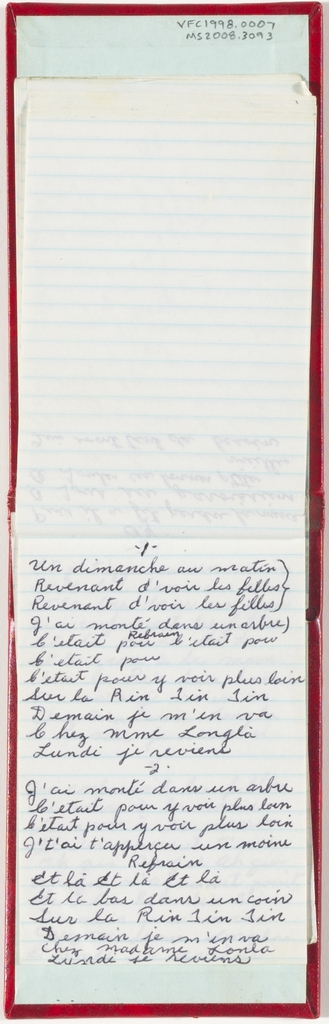 VFC1998.0007
MS2008.3093
-1-
Un dimanche au matin
Revenant d'voir les filles
Revenant d'voir les filles
J'ai monté dans un arbre
Refrain
C'etait pour C'etait pour
C'etait pour
C'etait pour y voir plus loin
Sur la Rin Tin Tin
Demain je m'en va
Chez Mme Longla
Lundi je reviens
-2-
J'ai monté dans un arbre
C'etait pour y voir plus loin
C'était pour y voir plus loin
J't'ai t'apperçu un moine
Refrain
Et là Et là Et là
Et la bas dans un coin
Sur la Rin Tin Tin
Demain je m'en va
Chez madame Lonla
Lundi je reviens